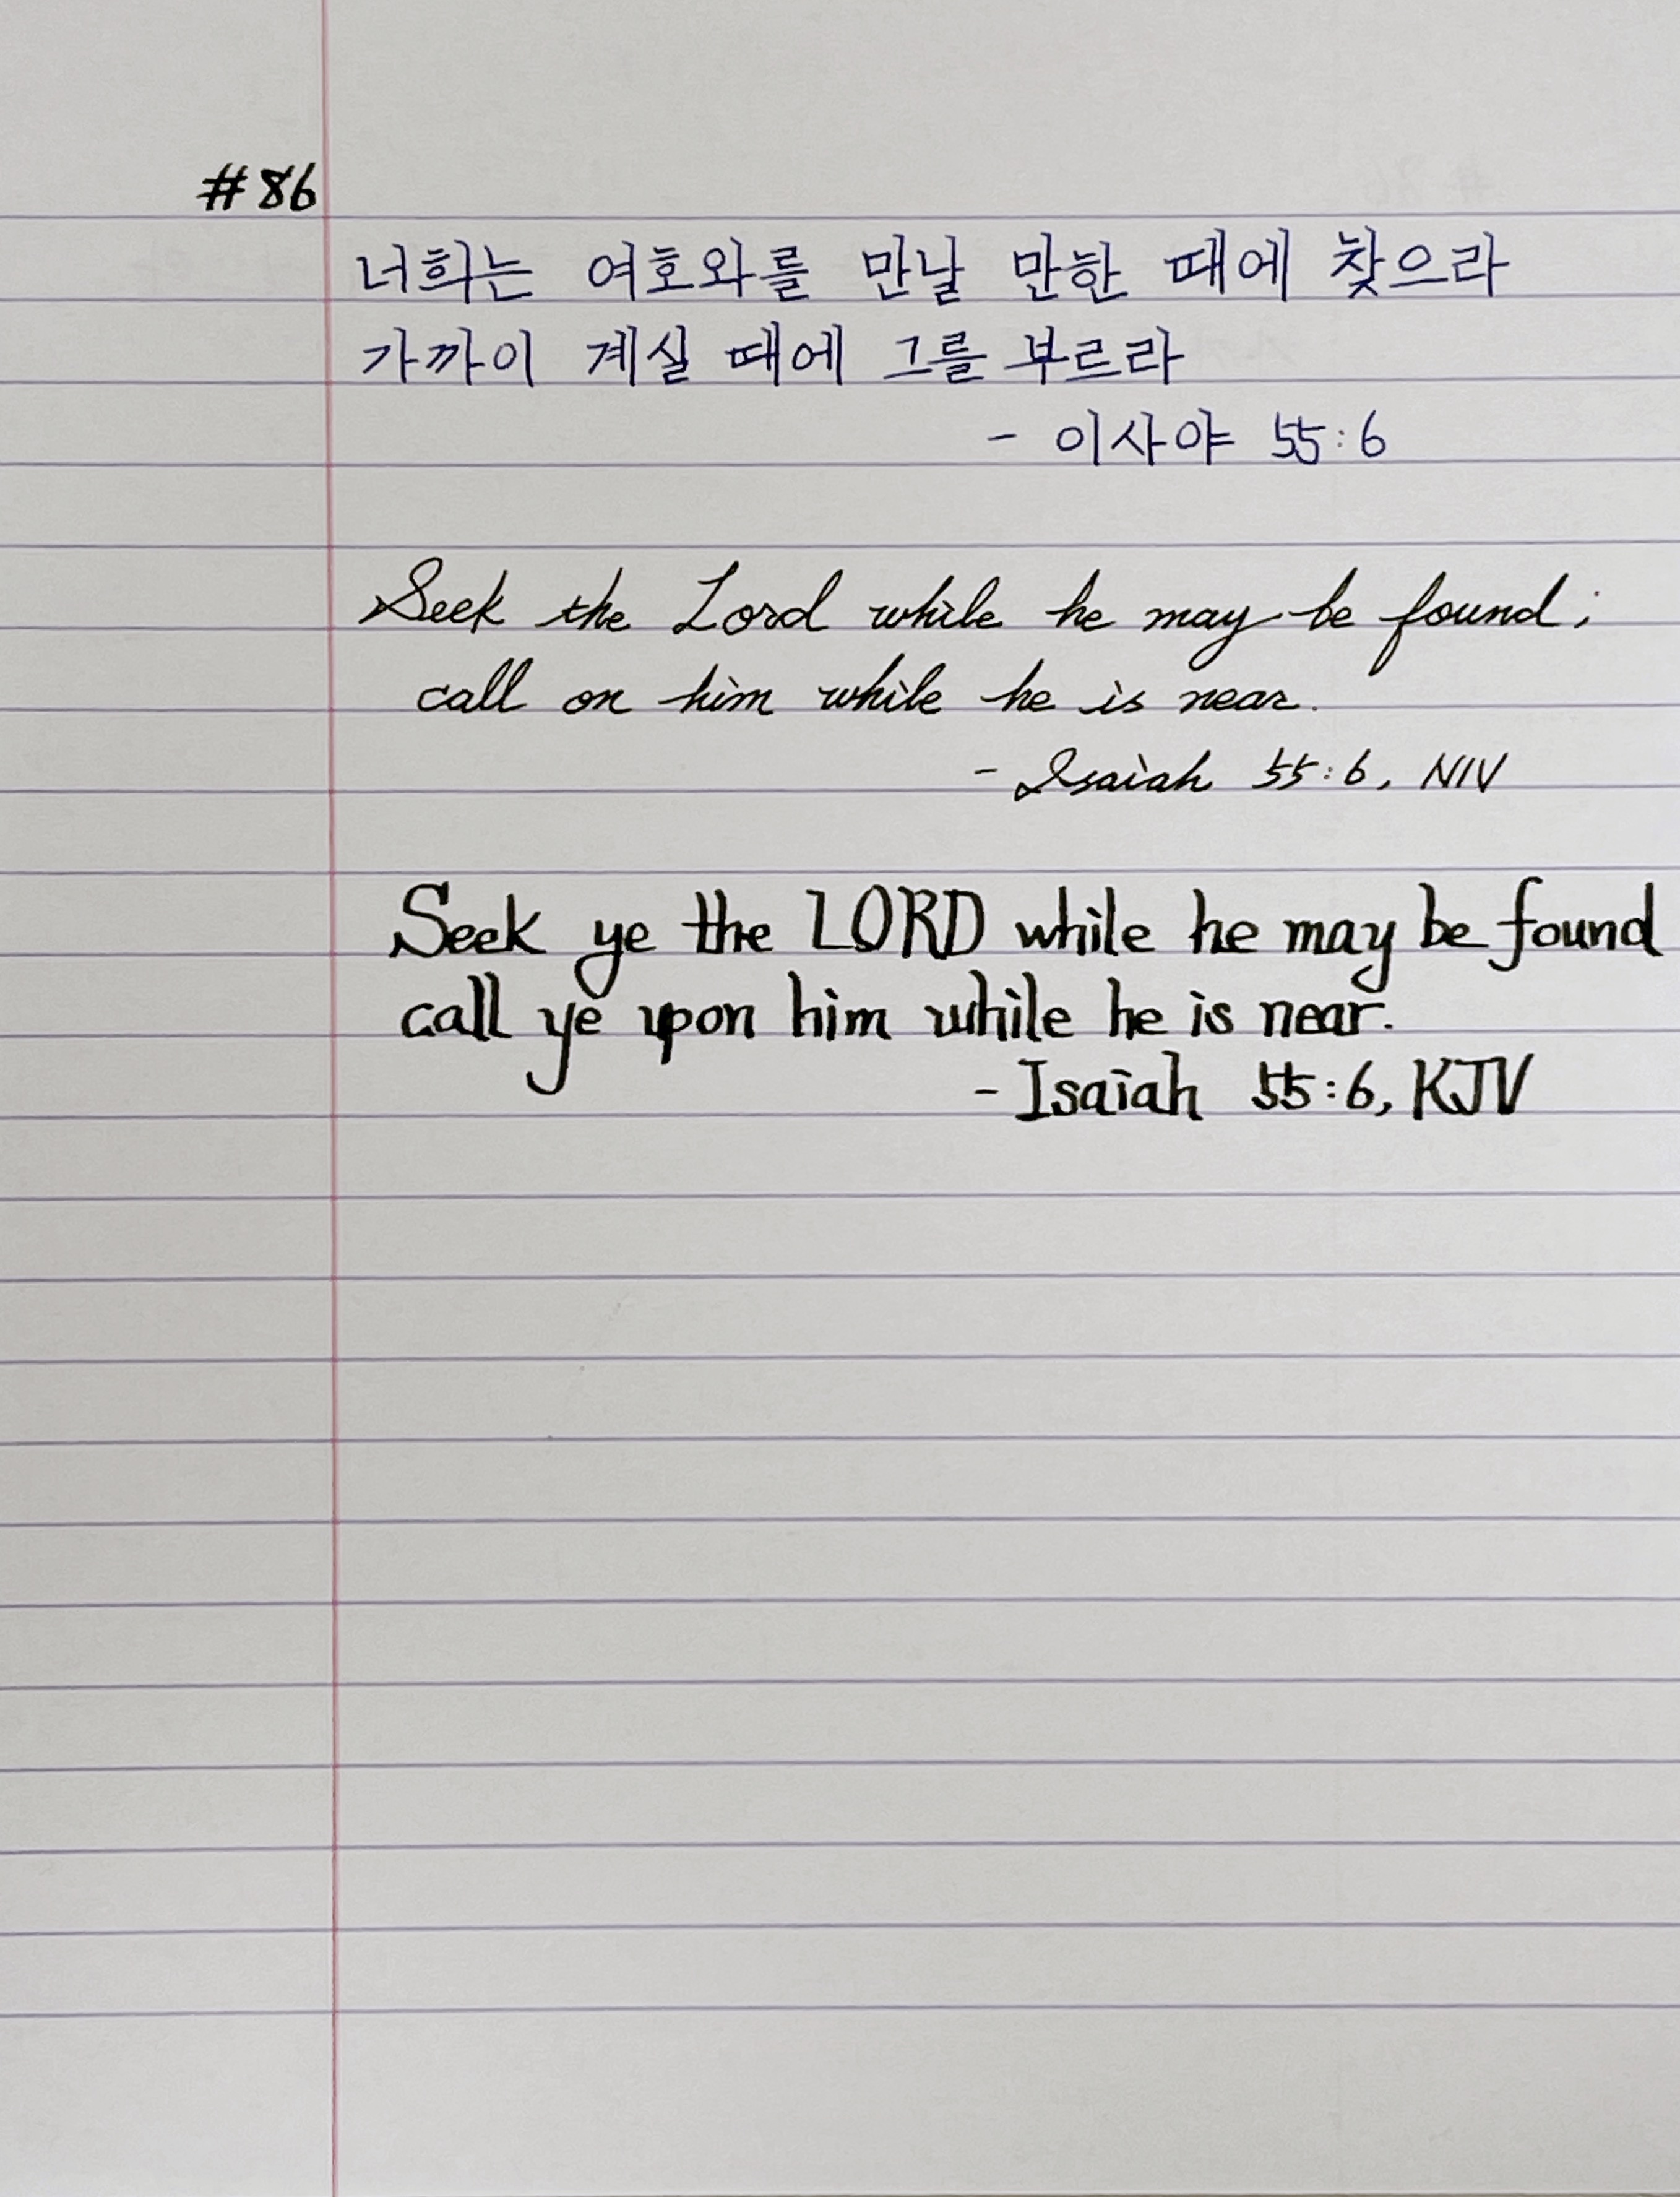 #86
너희는 여호와를 만날 만한 때에 찾으라
가까이 계실 때에 그를 부르라
- 이사야 55:6
Seek the Lord while he may be found;
call on him while he is near.
- Isaiah 55:6, NIV
Seek ye the LORD while he may be found
call ye upon him while he is near.
- Isaiah 55:6, KJV